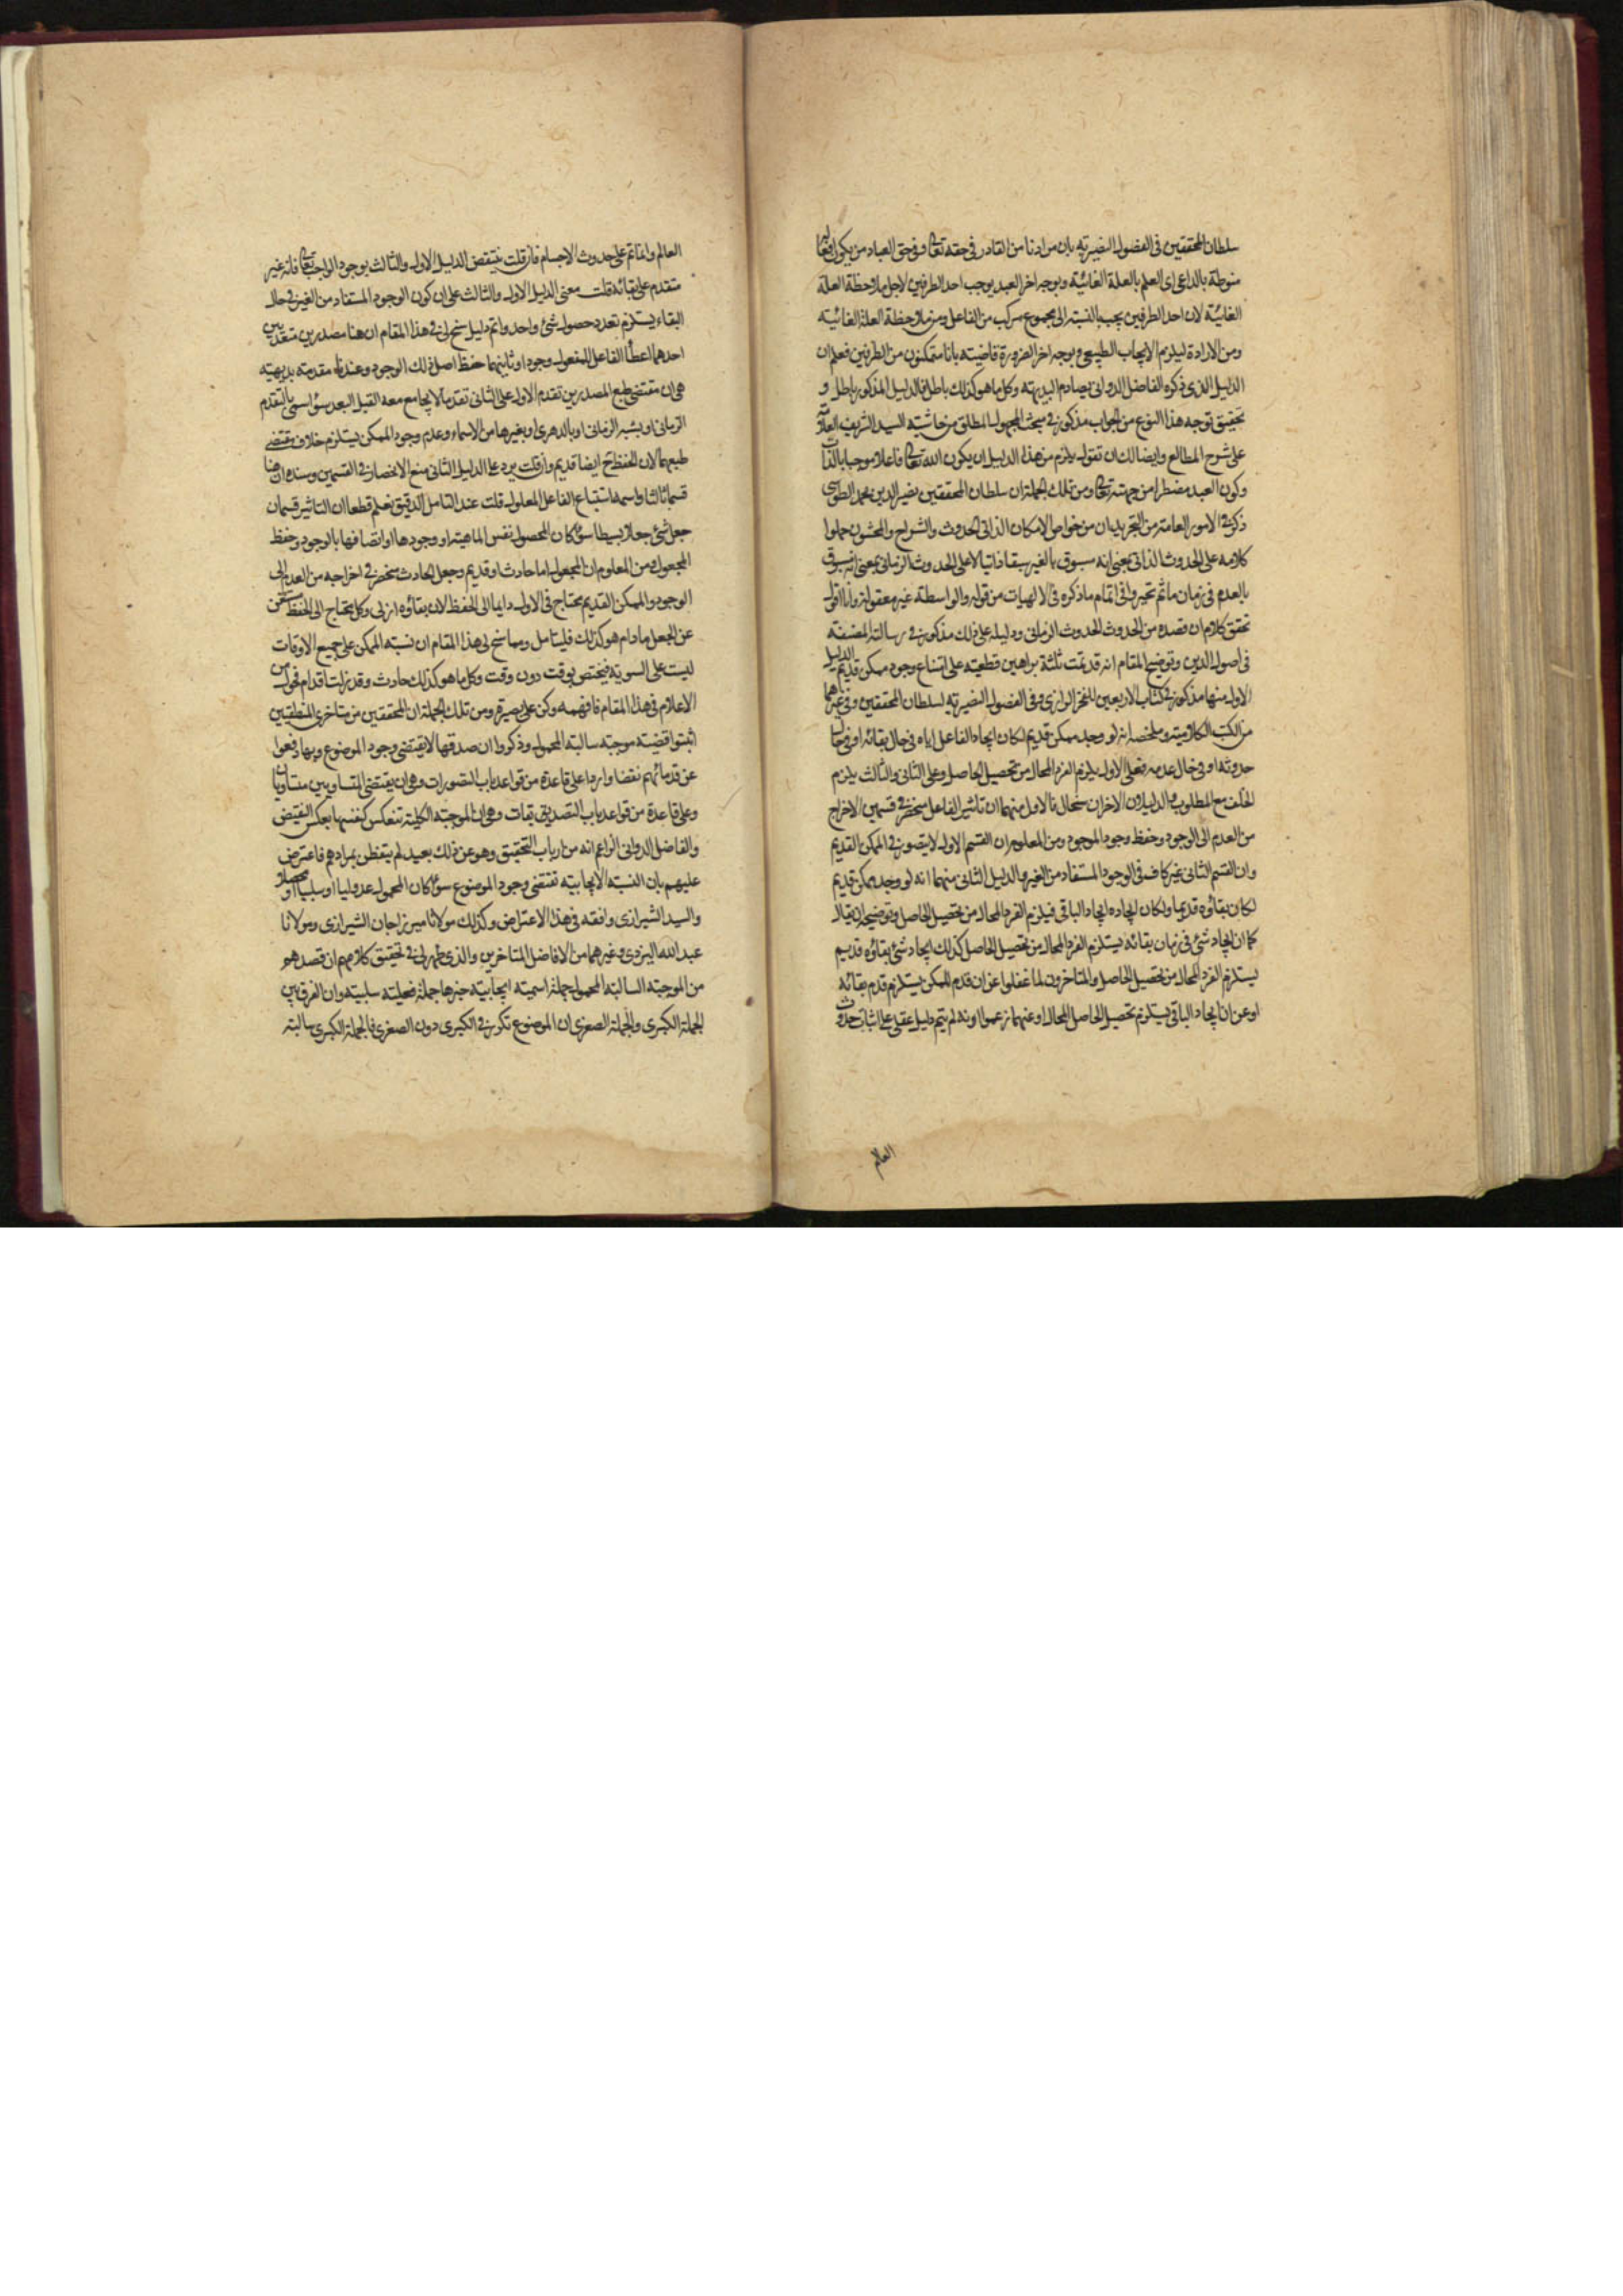 سلطان المحققين فى الفصول النصيرية بان مرادنا من القادر فى حقه تعالى وفى حق العباد من يكون افعاله
منوطة بالداعى اى العلم بالعلة الغائية وبوجه اخر العبد يوجب احد الطرفين لاجل ملاحظة العلة
الغائية لان احد الطرفين يجب بالنسبة الى مجموع مركب من الفاعل ومن ملاحظة العلة الغائية
ومن الارادة ليلزم الايجاب الطبيعى وبوجه اخر الضرورة قاضيته بانا متمكنون من الطرفين فعلم ان
الدليل الذى ذكره الفاضل الدوانى يصادم البديهة وكل ما هو كذلك باطل فالدليل المذكور باطل و
تحقيق توجه هذا النوع من الجواب مذكور فى مبحث المجهول المطلق من حاشية السيد الشريف العلامة
على شرح المطالع وايضا لك ان تقول يلزم من هذا الدليل ان يكون الله تعالى فاعلا موجبا بالذات
وكون العبد مضطرا من جهته تعالى ومن تلك الجملة ان سلطان المحققين نصير الدين محمد الطوسى
ذكر فى الامور العامة من التجريد ان من خواص الامكان الذاتى الحدوث والشراح والمحشون حملوا
كلامه على الحدوث الذاتى بمعنى انه مسبوق بالغير سبقا ذاتيا لا على الحدوث الزمانى بمعنى انه مسبوق
بالعدم فى زمان ما ثم تحيروا فى اتمام ما ذكره فى الالهيات من قوله والواسطة غير معقولة وانا اقول
تحقق كلام ان قصده من الحدوث الحدوث الزمانى ودليله على ذلك مذكور فى رسالته المصنفة
فى اصول الدين وتوضيح المقام انه قد تمت ثلثة براهين قطعية على امتناع وجود ممكن قديم الدليل
الاول منها مذكور فى كتاب الاربعين للفخر الرازى وفى الفصول النصيرية لسلطان المحققين وفى غيرهما
من الكتب الكلامية وملخصه انه لو وجد ممكن قديم لكان ايجاد الفاعل اياه فى حال بقائه او فى حال
حدوثه او فى حال عدمه فعلى الاول يلزم الفرد المحال من تحصيل الحاصل وعلى الثانى والثالث يلزم
الخلف مع المطلوب والدليلان الاخران سنحا لنا الاول منهما ان تاثير الفاعل منحصر فى قسمين الاخراج
من العدم الى الوجود وحفظ وجود الموجود ومن المعلوم ان القسم الاول لا يتصور فى الممكن القديم
وان القسم الثانى غير كاف فى الوجود المستفاد من الغير والدليل الثانى منهما انه لو وجد ممكن قديم
لكان بقاؤه قديما ولكان ايجاده ايجاد الباقى فيلزم الفرد المحال من تحصيل الحاصل وتوضيحه ان يقال
كما ان ايجاد شئ فى زمان بقائه يستلزم الفرد المحال من تحصيل الحاصل كذلك ايجاد شئ بقاؤه قديم
يستلزم الفرد المحال من تحصيل الحاصل والمتاخرون لما غفلوا عن ان قدم الممكن يستلزم قدم بقائه
او عن ان ايجاد الباقى يستلزم تحصيل الحاصل المحال او عنهما زعموا انه لم يتم دليل عقلى على اثبات حدوث
العالم
العالم وانما تم على حدوث الاجسام فان قلت ينتقض الدليل الاول والثالث بوجود الواجب تعالى فانه غير
متقدم على بقائه قلت معنى الدليل الاول والثالث على ان كون الوجود المستفاد من الغير فى حال
البقاء يستلزم تعدد حصول شئ واحد واتم دليل سنح لى فى هذا المقام ان هنا مصدرين متعديين
احدهما اعطأ الفاعل للمفعول وجودا وثانيهما حفظ اصل ذلك الوجود وعندنا مقدمته بديهية
هى ان مقتضى طبع المصدرين تقدم الاول على الثانى تقدما لا يجامع معه القبل البعد سوا سمى بالتقدم
الزمانى او بشبه الزمانى او بالدهرى او بغيرها من الاسماء وعدم وجود الممكن يستلزم خلاف مقتضى
طبعهما لان الحفظ ح ايضا قديم وان قلت يرد على الدليل الثانى منع الانحصار فى القسمين وسنده ان هنا
قسما ثالثا واسمه استتباع الفاعل المعلول قلت عند التامل الدقيق نعلم قطعا ان التاثير قسمان
جعل شئ جعلا بسيطا سوأ كان المحصول نفس الماهية او وجودها او اتصافها بالوجود وحفظ
المجعول ومن المعلوم ان المجعول اما حادث او قديم وجعل الحادث منحصر فى اخراجه من العدم الى
الوجود والممكن القديم يحتاج فى الاول دايما الى الحفظ لان بقاؤه ازلى وكل محتاج الى الحفظ مستغن
عن الجعل ما دام هو كذلك فليتامل ومما سنح لى هذا المقام ان نسبة الممكن على جميع الاوقات
ليست على السوية فيختص بوقت دون وقت وكل ما هو كذلك حادث وقد زلت اقدام فحول من
الاعلام فى هذا المقام فافهمه وكن على بصيرة ومن تلك الجملة ان المحققين من متاخرى المنطقيين
اثبتوا قضية موجبة سالبة المحمول وذكروا ان صدقها لا يقتضى وجود الموضوع وبها دفعوا
عن قدمائهم نقضا واردا على قاعدة من قواعد باب التصورات وهى ان نقيضى المتساويين متساويان
وعلى قاعدة من قواعد باب التصديقات وهى ان الموجبة الكلية تنعكس كنفسها بعكس النقيض
والفاضل الدوانى الزاعم انه من ارباب التحقيق وهو عن ذلك بعيد لم يتفطن بمرادهم فاعترض
عليهم بان النسبة الايجابية تقتضى وجود الموضوع سوأ كان المحمول عدوليا او سلبيا او محصلا
والسيد الشيرازى وافقه فى هذا الاعتراض وكذلك مولانا ميرزاجان الشيرازى ومولانا
عبد الله اليزدى وغيرهما من الافاضل المتاخرين والذى ظهر لى فى تحقيق كلامهم ان قصدهم
من الموجبة السالبة المحمول جملة اسمية ايجابية خبرها جملة فعلية سلبية وان الفرق بين
الجملة الكبرى والجملة الصغرى ان الموضوع تكرر فى الكبرى دون الصغرى فالجملة الكبرى سالبته